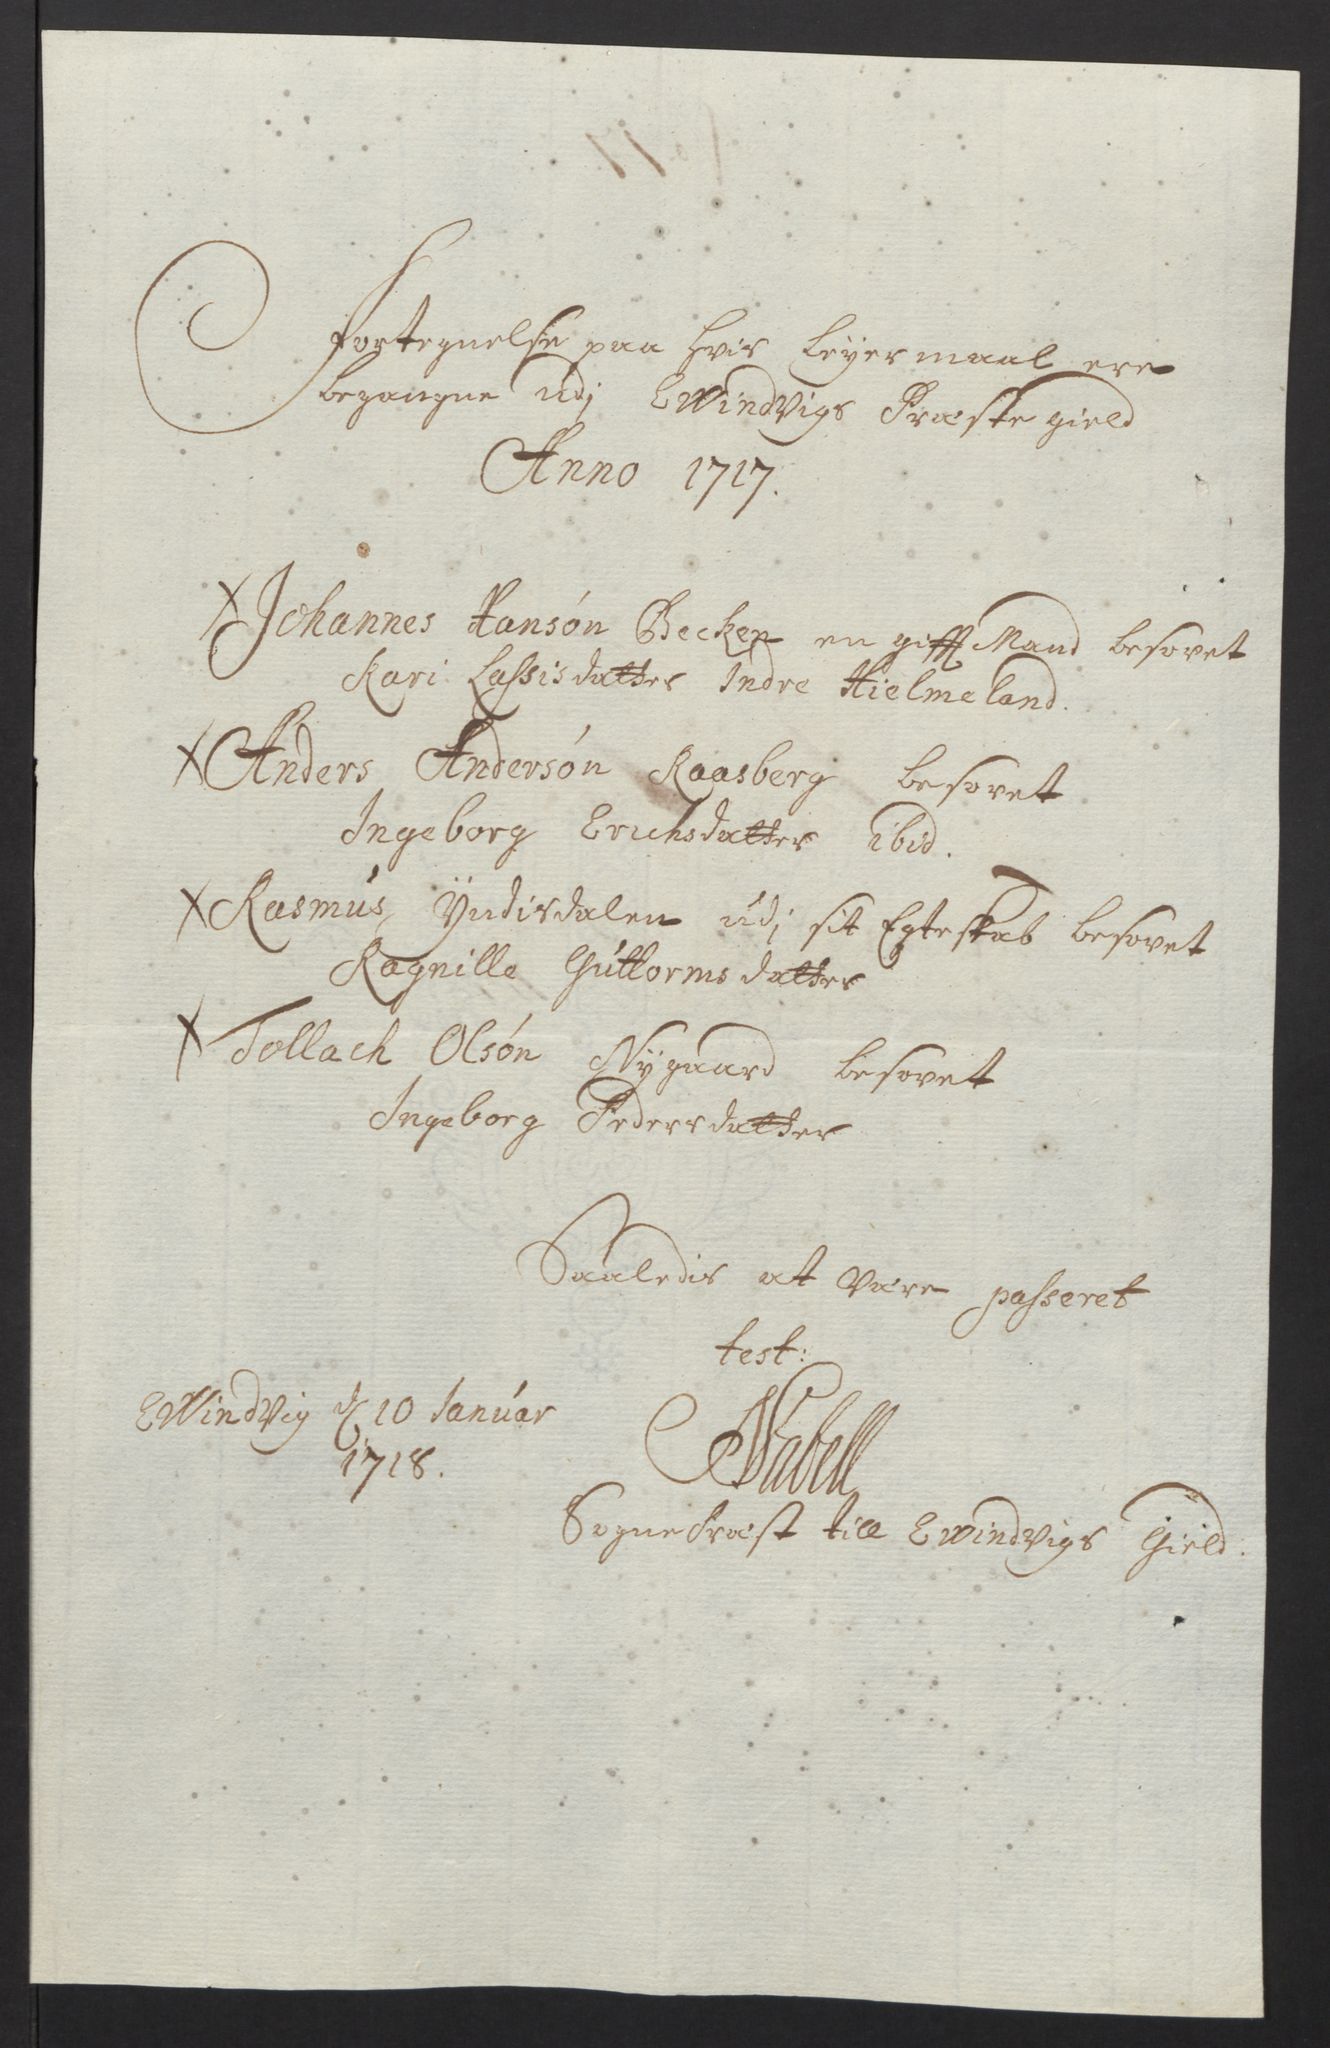 Fortegnelse paa hvis Leyermaal ere
begangne udj EWindVigs Præstegield
Anno 1717.
X Johannes Hansón Becken en gifft Mand besovet
Kari Lassisdatter Indre Hielmeland.
X Anders Andersón Raasberg besovet
Ingeborg Erichsdatter ibid.
X Rasmus Ÿndisdalen udj sit Egteskab besovet
Ragnille Guttormsdatter
X Tollach Olsón Nÿgaard besovet
Ingeborg Pedersdatter
Saaledis at være passeret
test:
EWindVig d 10 Januar
1718.
Nabell
SognePræst till EWindVigs Gield.